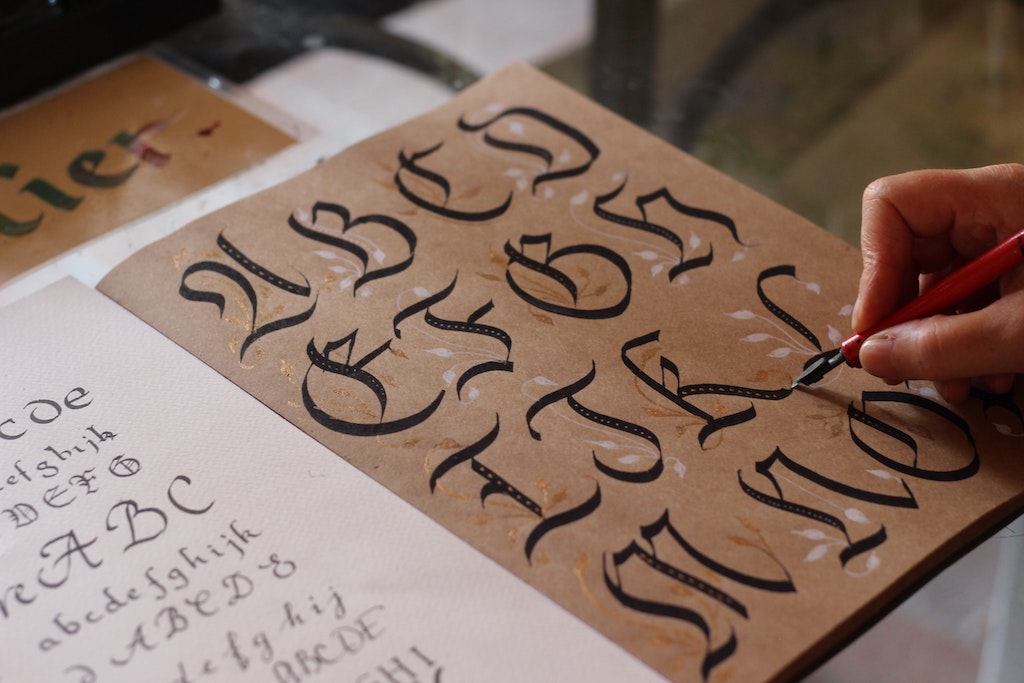 lier
A B C D
E F G H
I J K L
M N O
cDe
efghijk
DEFG
ABC
abcdefghijk
ABCDE
efghij
ABCDE
HI